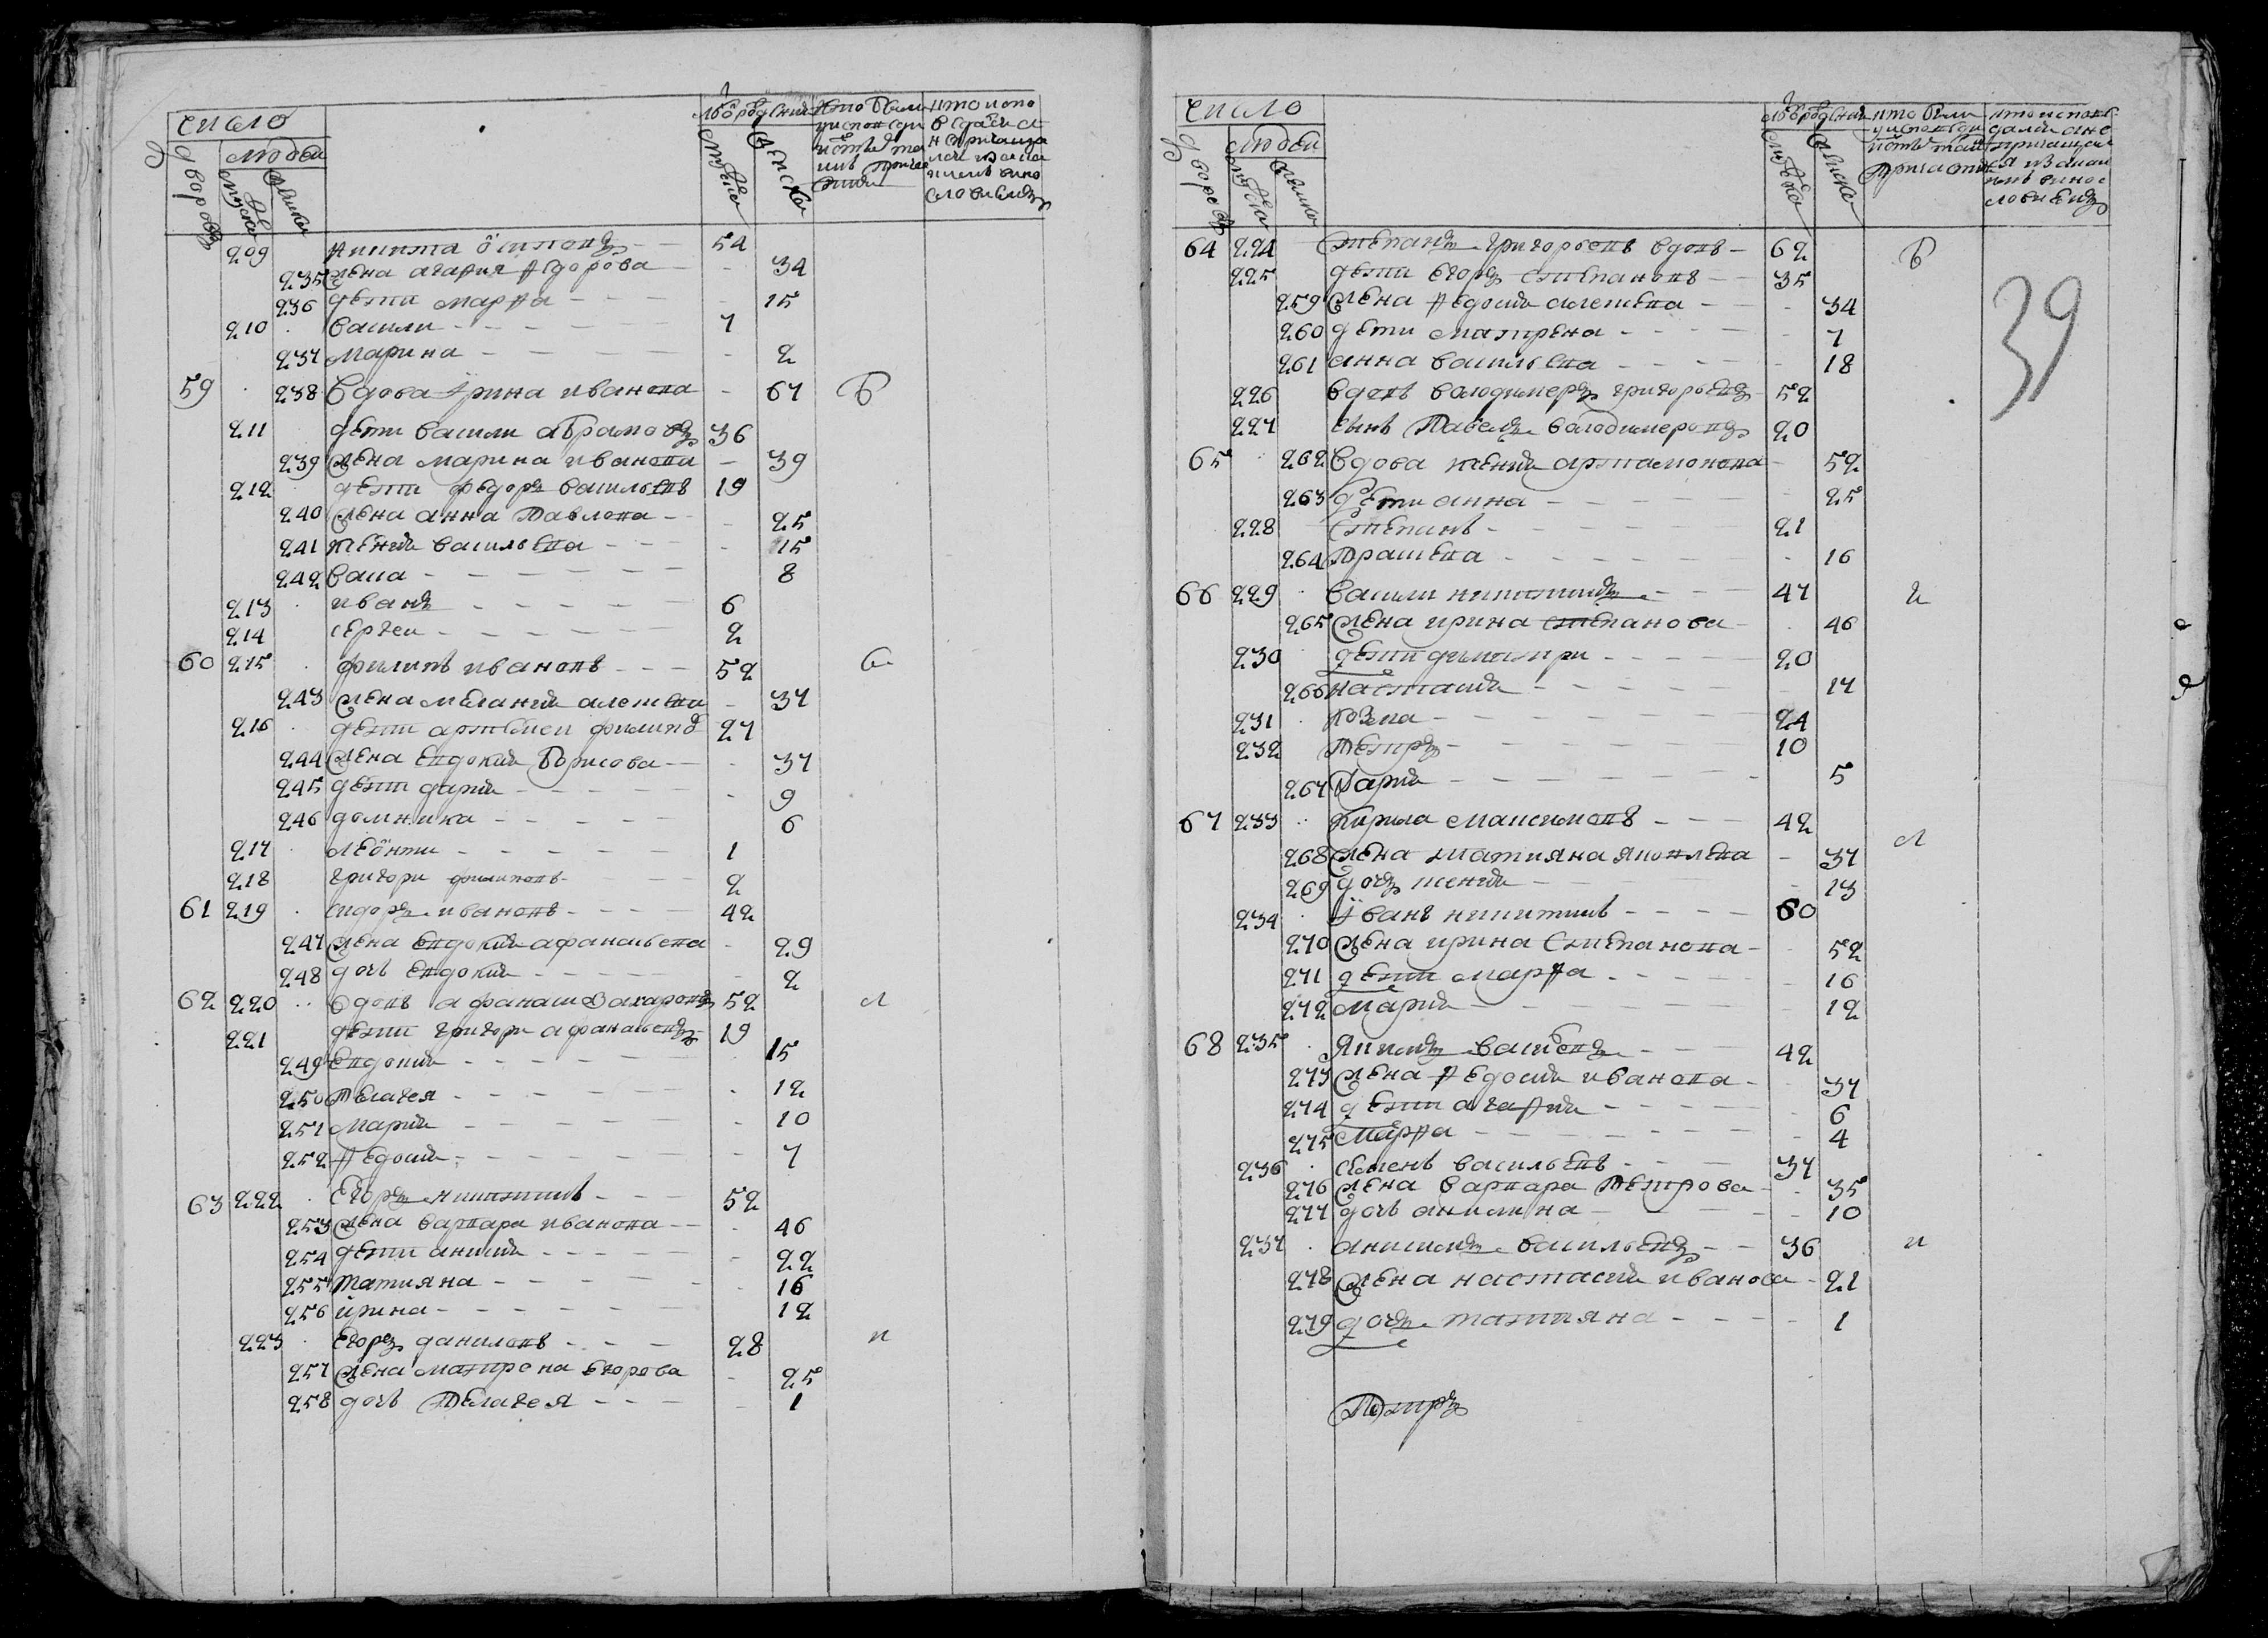 число
дворовъ
людей
мужеска
женска
лѣта от рожденія
мужеска
женска
209 Никита Осиповъ 54
235 жена агафия Федорова 34
236 дети марфа 15
210 васили 7
237 марина 2
59 238 вдова Ірина иванова 67 Б
211 дети васили абрамовъ 36
239 жена марина иванова 39
212 дети федоръ васильевъ 19
240 жена анна Павлова 25
241 ксения васильева 15
242 васа 8
213 иванъ 6
214 сергеи 2
60 215 филипъ ивановъ 52
243 жена мелания алексеева 37
216 дети артемеи филипо 27
244 жена Евдокия Борисова 37
245 дети дария 9
246 домника 6
217 леонти 1
218 григори филиповъ 2
61 219 сидоръ ивановъ 42
247 жена Евдокия афанасьева 29
248 дочь Евдокия 2
62 220 вдовъ афанаси Захаровъ 52 л
221 дети григори афанасьевъ 19
249 Евдокия 15
250 Пелагея 12
251 Мария 10
252 Федосия 7
63 222 Егоръ никитинъ 52
253 жена варвара иванова 46
254 дети анисия 22
255 татияна 16
256 ирина 12
223 Егоръ даниловъ 28 и
257 жена матрона егорова 25
258 дочь Пелагея 1
число
дворовъ
людей
мужеска
женска
лѣта от рожденія
мужеска
женска
39
64 224 Степанъ григорьевъ вдовъ 62 Б
225 дети Егоръ степановъ 35
259 жена Федосия алексеева 34
260 дети матрена 7
261 анна васильева 18
226 вдовъ володимеръ григорьевъ 52
227 сынъ Павелъ володимеровъ 20
65 262 вдова ксения артамонова 52
263 дети анна 25
228 Степанъ 21
264 Прасковья 16
66 229 васили никитинъ 47 и
265 жена ирина степанова 46
230 дети дмитри 20
266 настасия 17
231 Козма 24
232 Петръ 10
267 Дария 5
67 233 Кирила максимовъ 42 л
268 жена татияна яковлева 37
269 дочь ксения 13
234 Іванъ никитинъ 60
270 жена ирина Степанова 52
271 дети марфа 16
272 Мария 12
68 235 Якимъ васильевъ 42
273 жена Федосия иванова 37
274 дети агафия 6
275 Марфа 4
236 семенъ васильевъ 37
276 жена варвара Петрова 35
277 дочь акилина 10
237 анисимъ васильевъ 36 и
278 жена настасия иванова 21
279 дочь татияна 1
Петръ